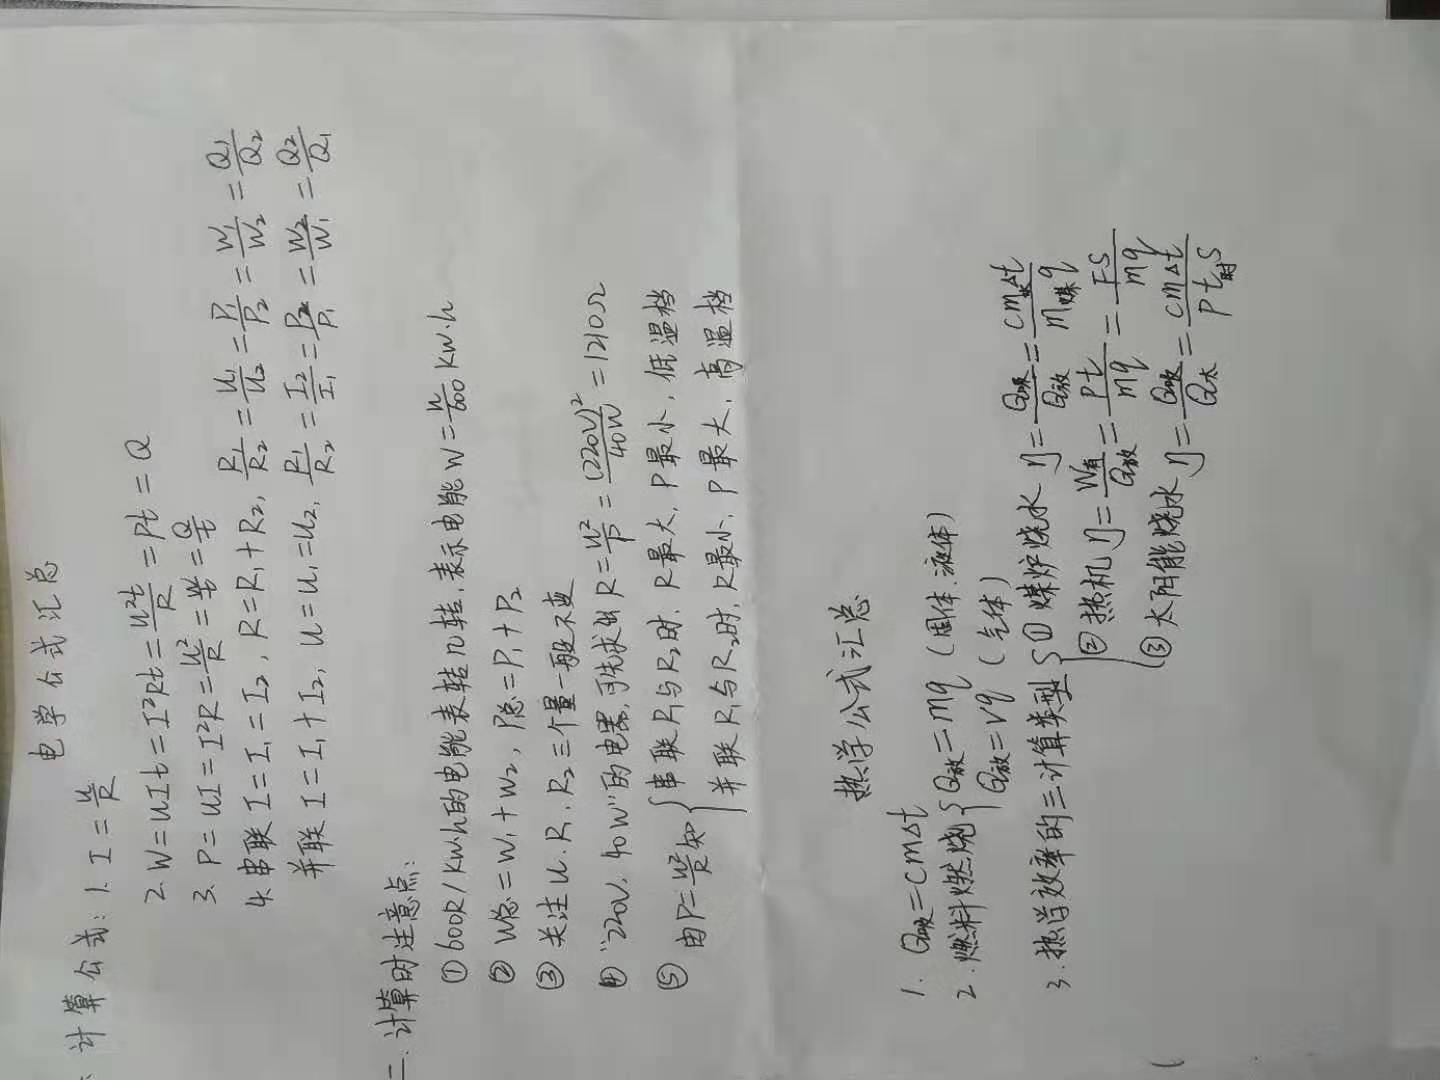 电学公式汇总
、计算公式：1. I=U/R
2. W=UIt=I²Rt=U²t/R=Pt=Q
3. P=UI=I²R=U²/R=W/t=Q/t
4. 串联 I=I₁=I₂, R=R₁+R₂, R₁/R₂=U₁/U₂=P₁/P₂=W₁/W₂=Q₁/Q₂
并联 I=I₁+I₂, U=U₁=U₂, R₁/R₂=I₂/I₁=P₂/P₁=W₂/W₁=Q₂/Q₁
二.计算时注意点:
① 600R/KW·h的电能表转n转,表示电能W=n/600 KW·h
② W总=W₁+W₂, P总=P₁+P₂
③ 关注U.R₁.R₂三个量一般不变
④ "220V, 40W"的电器,可先求出R=U²/P=(220V)²/40W=1210Ω
⑤ 由P=U²/R知{串联R₁与R₂时, R最大, P最小, 低温档
并联R₁与R₂时, R最小, P最大, 高温档
热学公式汇总
1. Q吸=Cm△t
2. 燃料燃烧{Q放=mq (固体.液体)
Q放=vq (气体)
3. 热学效率的三计算类型{① 煤炉烧水 η=Q吸/Q放=Cm水△t/m煤q
② 热机η=W有/Q放=Pt/mq=FS/mq
③ 太阳能烧水η=Q吸/Q太=Cm△t/Pt时S